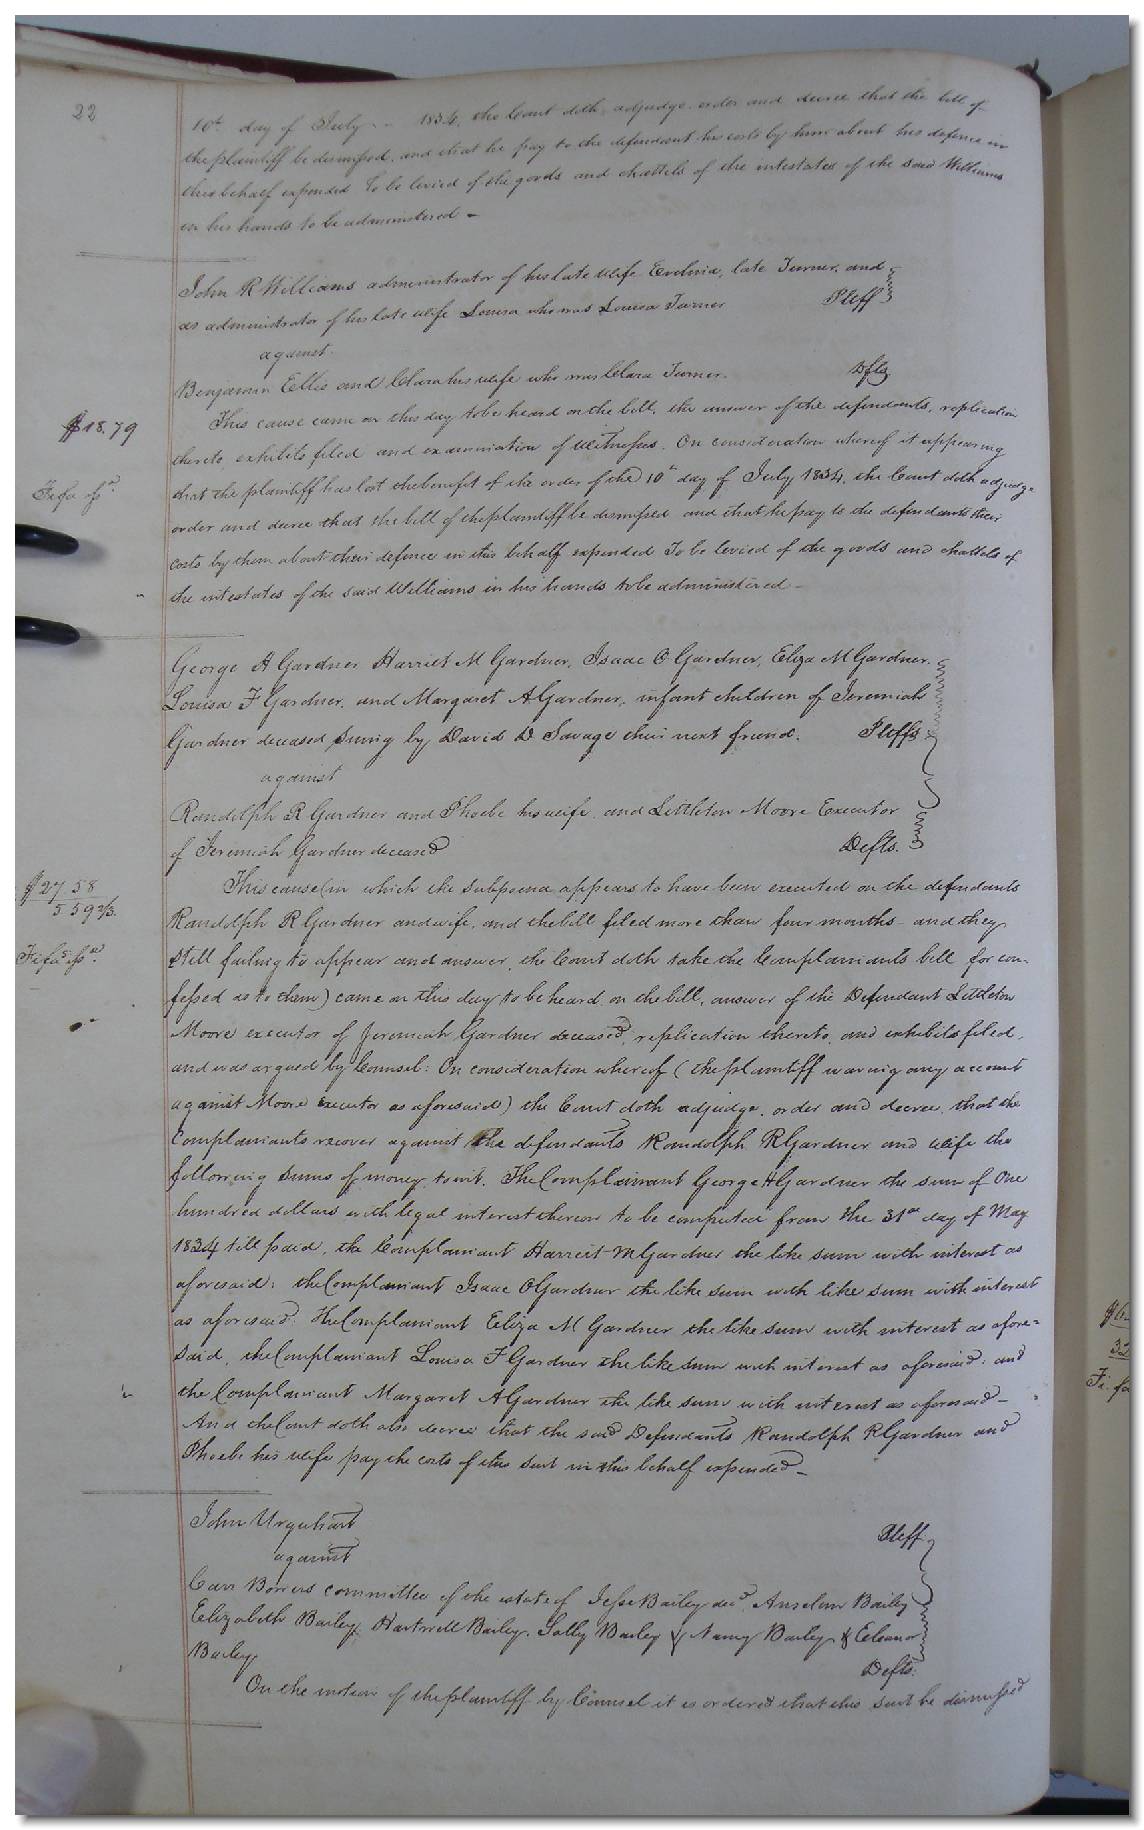 22
10th day of July - 1834, the Court doth adjudge order and decree that the bill of
the plaintiff be dismissed, and that he pay to the defendant his costs by him about his defence in
this behalf expended To be levied of the goods and chattels of the intestates of the said Williams
in his hands to be administered -
John R Williams administrator of his late wife Evelina, late Turner, and
as administrator of his late wife Louisa who was Louisa Turner Pltff
against
Benjamin Ellis and Clara his wife who was Clara Turner. Dfts
$18.79
This cause came on this day to be heard on the bill, the answer of the defendants, replication
thereto, exhibits filed and examination of witnesses. On consideration whereof it appearing
that the plaintiff has lost the benefit of the order of the 10th day of July 1834, the Court doth adjudge
Fi fa issd.
order and decree that the bill of the plaintiff be dismissed and that he pay to the defendants their
costs by them about their defence in this behalf expended To be levied of the goods and chattels of
the intestates of the said Williams in his hands to be administered -
George A Gardner Harriet M Gardner, Isaac O Gardner, Eliza M Gardner.
Louisa F Gardner, and Margaret A Gardner, infant children of Jeremiah
Gardner deceased suing by David D Savage their next friend. Pltffs
against
Randolph R Gardner and Phoebe his wife, and Littleton Moore Executor
of Jeremiah Gardner deceased Defts.
$27.58
5 59 2/3
This cause (in which the subpoena appears to have been executed on the defendants
Randolph R Gardner and wife, and the bill filed more than four months and they
Fi fas issd.
still failing to appear and answer, the Court doth take the Complainants bill for con-
fessed as to them) came on this day to be heard on the bill, answer of the Defendant Littleton
Moore executor of Jeremiah Gardner deceased, replication thereto, and exhibits filed,
and was argued by Counsel: On consideration whereof (the plaintiff waving any account
against Moore executor as aforesaid) the Court doth adjudge, order and decree, that the
Complainants recover against the defendants Randolph R Gardner and wife the
following sums of money, towit. The Complainant George H Gardner the sum of One
hundred dollars with legal interest thereon to be computed from the 31st day of May
1834 till paid, the Complainant Harriet M Gardner the like sum with interest as
aforesaid: the Complainant Isaac O Gardner the like sum with like sum with interest
as aforesaid. The Complainant Eliza M Gardner the like sum with interest as afore=
said, the Complainant Louisa F Gardner the like sum with interest as aforesaid: and
the Complainant Margaret A Gardner the like sum with interest as aforesaid -
And the Court doth also decree that the said Defendants Randolph R Gardner and
Phoebe his wife pay the costs of this suit in this behalf expended -
John Urquhart Pltff
against
Carr Bowers committee of the estate of Jesse Bailey decd, Anselm Bailey
Elizabeth Bailey, Hartwell Bailey, Sally Bailey & Nancy Bailey & Eleanor
Bailey Defts.
On the motion of the plaintiff by Counsel it is ordered that this suit be dismissed